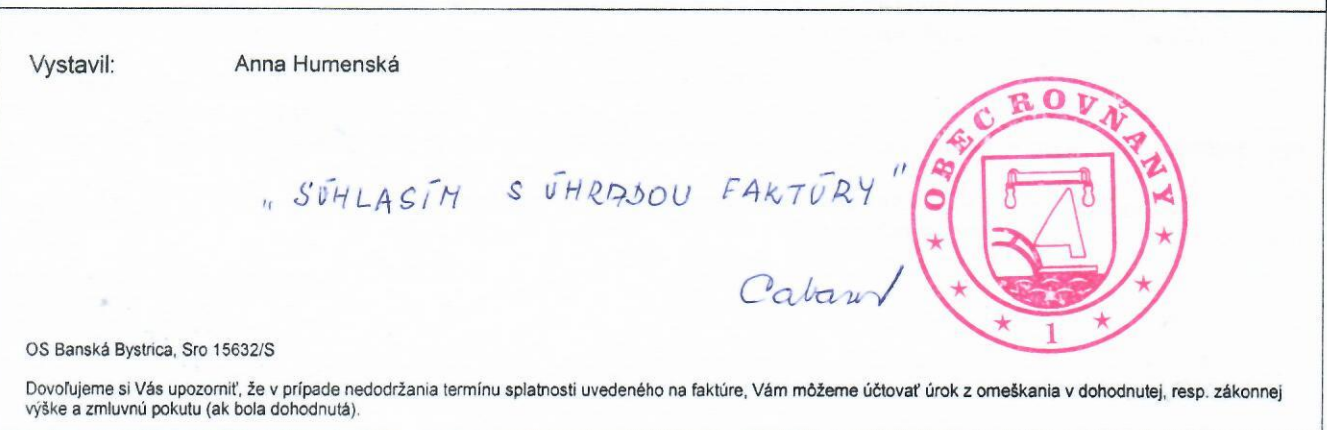 Vystavil: Anna Humenská
OBEC ROVŇANY
„SÚHLASÍM S ÚHRADOU FAKTÚRY"
1
OS Banská Bystrica, Sro 15632/S
Dovoľujeme si Vás upozorniť, že v prípade nedodržania termínu splatnosti uvedeného na faktúre, Vám môžeme účtovať úrok z omeškania v dohodnutej, resp. zákonnej
výške a zmluvnú pokutu (ak bola dohodnutá).